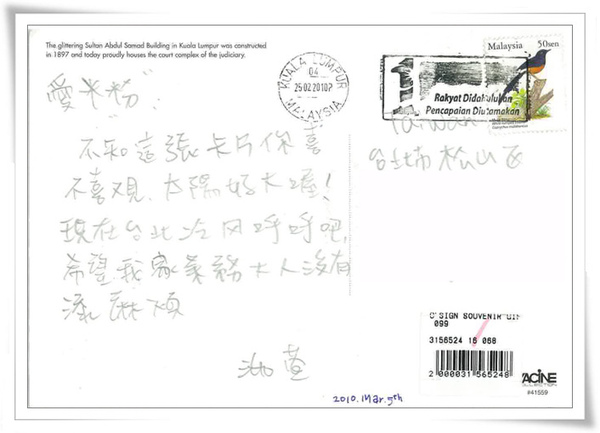 The glittering Sultan Abdul Samad Building in Kuala Lumpur was constructed
in 1897 and today proudly houses the court complex of the judiciary.
KUALA LUMPUR
04
25 02 2010
MALAYSIA
Rakyat Didahulukan
Pencapaian Diutamakan
Malaysia 50 sen
Taiwan
台北市松山區
愛米粉:
不知這張卡片你喜
不喜歡,太陽好大喔!
現在台北冷风呼呼吧
希望我家業務大人沒有
添麻煩
2010.Mar.5th
SIGN SOUVENIR
099
3156524 16 068
2 000031 565248
#41559